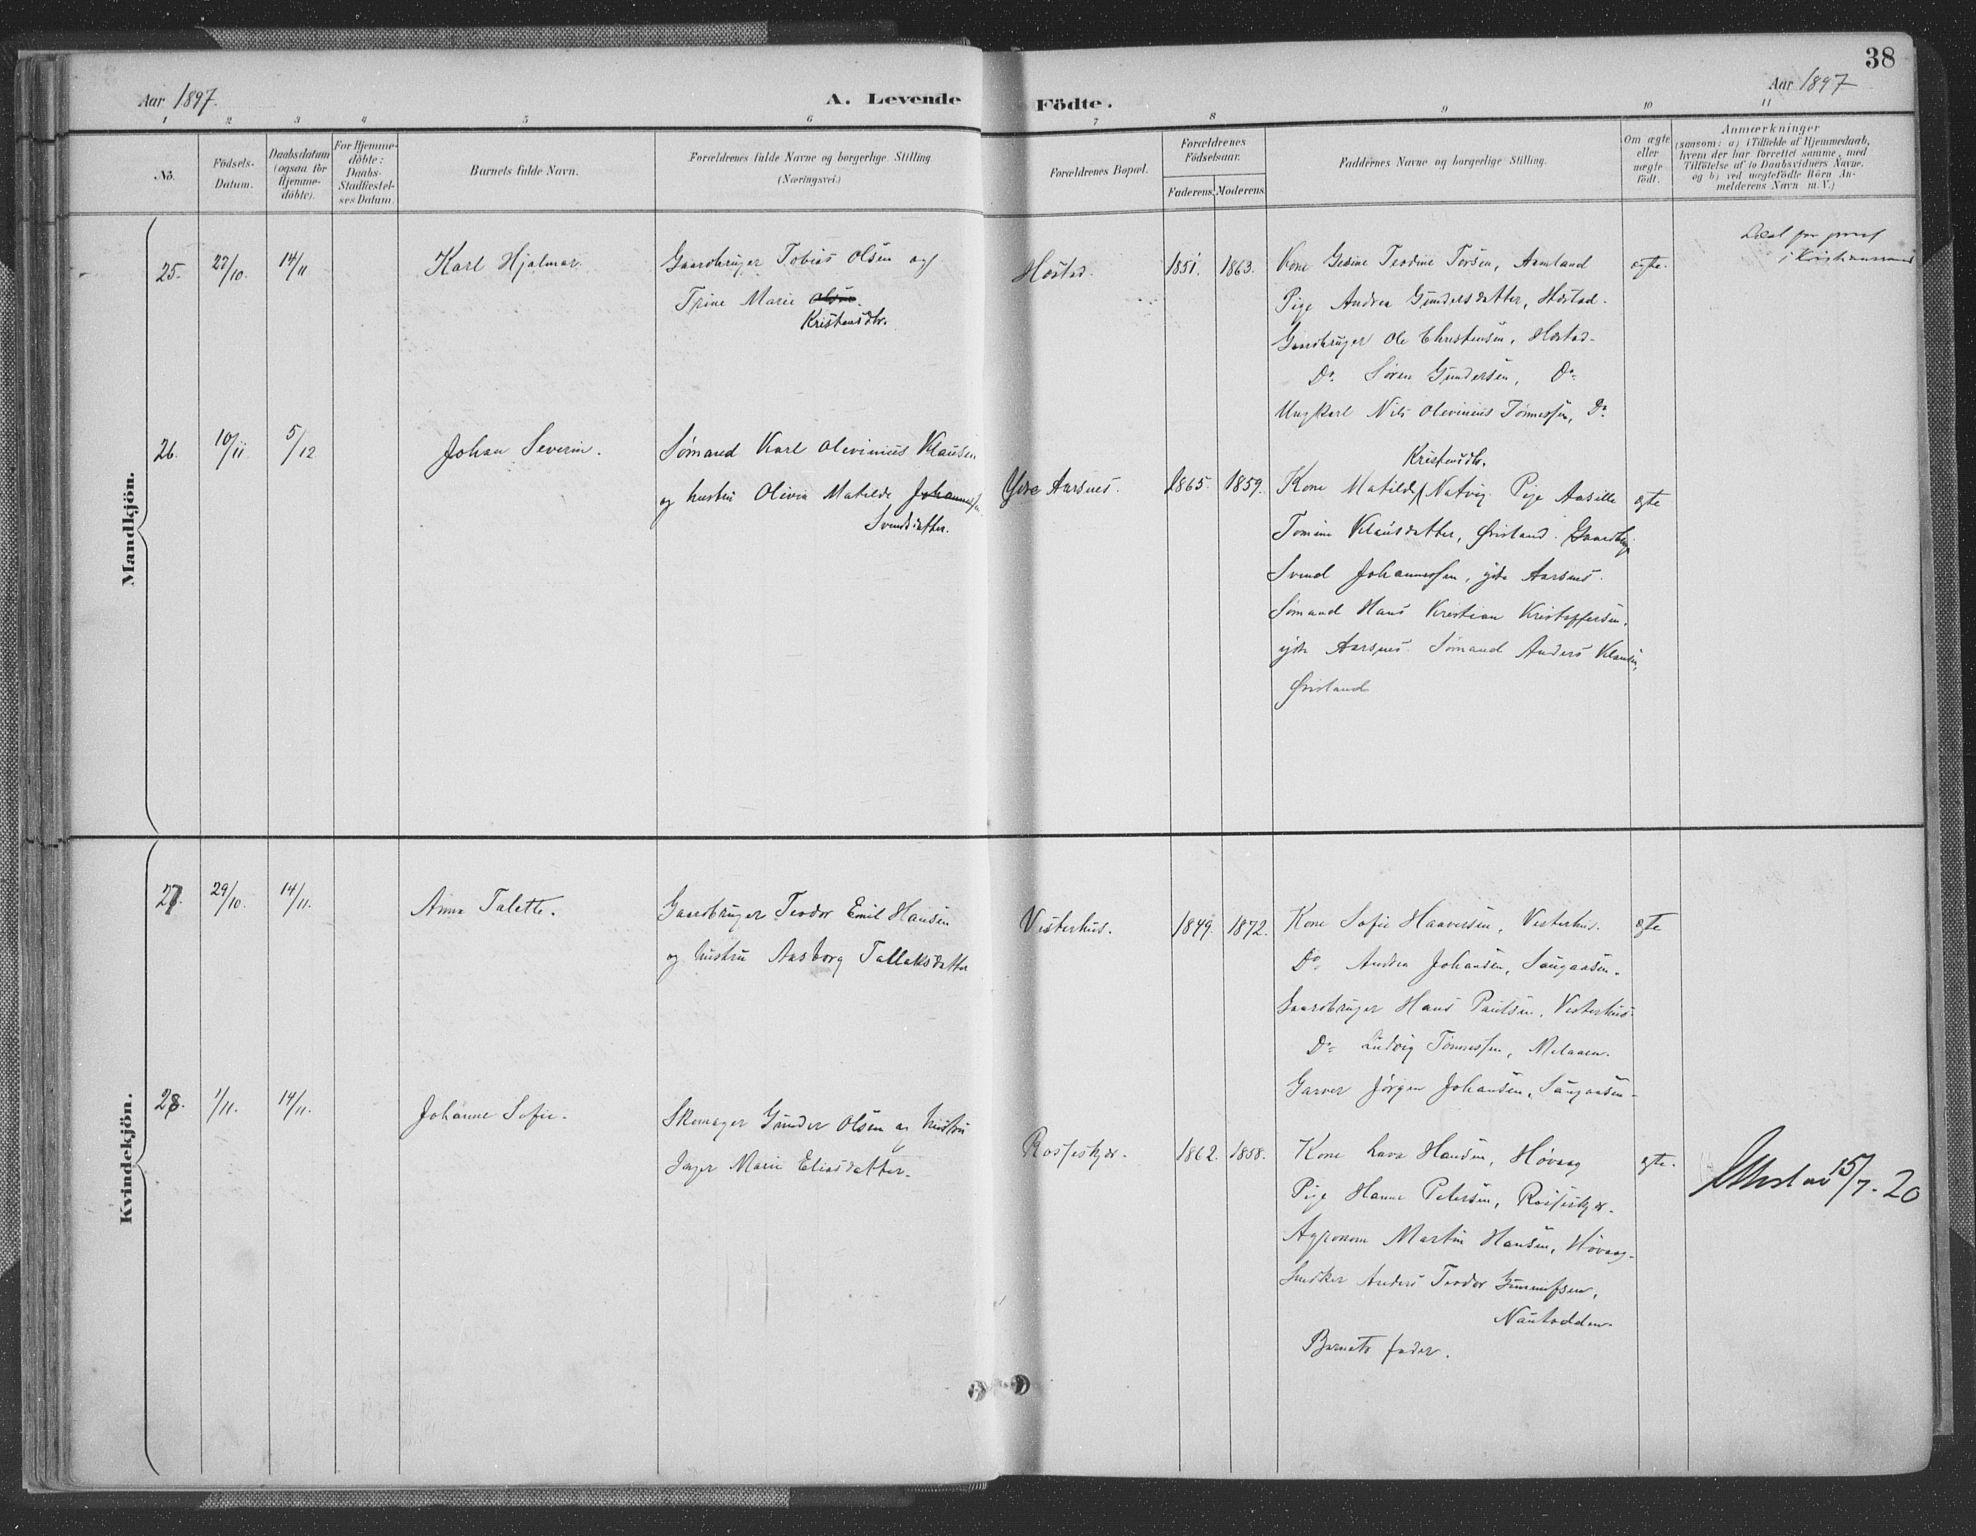 38
Aar 1897.
A. Levende Födte.
Aar 1897
1 2 3 4 5 6 7 8 9 10 11
No.
Födsels-
Datum.
Daabsdatum
(ogsaa for
Hjemme-
döbte).
For Hjemme-
döbte:
Daabs-
Stadfæstel-
ses Datum.
Barnets fulde Navn.
Forældrenes fulde Navne og borgerlige Stilling
(Næringsvei.)
Forældrenes Bopæl.
Forældrenes
Födselsaar.
Faderens. Moderens.
Faddernes Navne og borgerlige Stilling.
Om ægte
eller
uægte
födt.
Anmærkninger
(saasom: a) i Tilfælde af Hjemmedaab,
hvem der har forrettet samme, med
Tilföielse af to Daabsvidners Navne,
og b) ved uægtefödte Börn An-
melderens Navn m. V.)
Mandkjön.
25. 27/10. 14/11
Karl Hjalmar.
Gaardbruger Tobias Olsen og
Trine Marie Olsen.
Kristensdtr.
Hæstad.
1851. 1863.
Kone Gesine Teodine Torsen, Aamland
Pige Andrea Gundersdatter, Hæstad.
Gaardbruger Ole Christensen, Hæstad.
Do. Søren Gundersen, Do.
Ungkarl Nils Olevinius Tønnessen, Do.
ægte.
i Kristianssand
26. 10/11. 5/12
Johan Severin.
Sømand Karl Olevinius Klausen
og hustru Olivia Matilde Johannessen.
Svendsdatter.
Ydre Aarsnes.
1865. 1859.
Kristensdtr.
Kone Matilde Natvig. Pige Aasille
Tomine Klausdatter, Øvland. Gaardbrug
Svend Johannessen, ydre Aarsnes.
Sømand Hans Kristian Kristoffersen,
ydre Aarsnes. Sømand Anders Klausen,
ægte
Kvindekjön.
27. 29/10. 14/11.
Anna Talette.
Gaardbruger Teodor Emil Hansen
og hustru Aasborg Tallaksdatter
Vesterhus.
1849. 1872.
Kone Sofie Haaversen, Vesterhus.
Do. Andrea Johansen, Saugaasen.
Gaardbruger Hans Paulsen, Vesterhus.
Do. Ludvig Tønnessen, Melaaen.
Garver Jørgen Johansen, Saugaasen.
ægte
28. 1/11. 14/11.
Johanne Sofie.
Skomager Gunder Olsen og hustru
Inger Marie Eliasdatter.
Rossekjær.
1862. 1858.
Kone Lava Hansen, Høvaag
Pige Hanne Petersen, Rossekjær.
Agronom Martin Hansen, Høvaag.
Snedker Anders Teodor Gunnufsen,
Nautodden.
Barnets fader.
ægte.
Attestav 15/7. 20